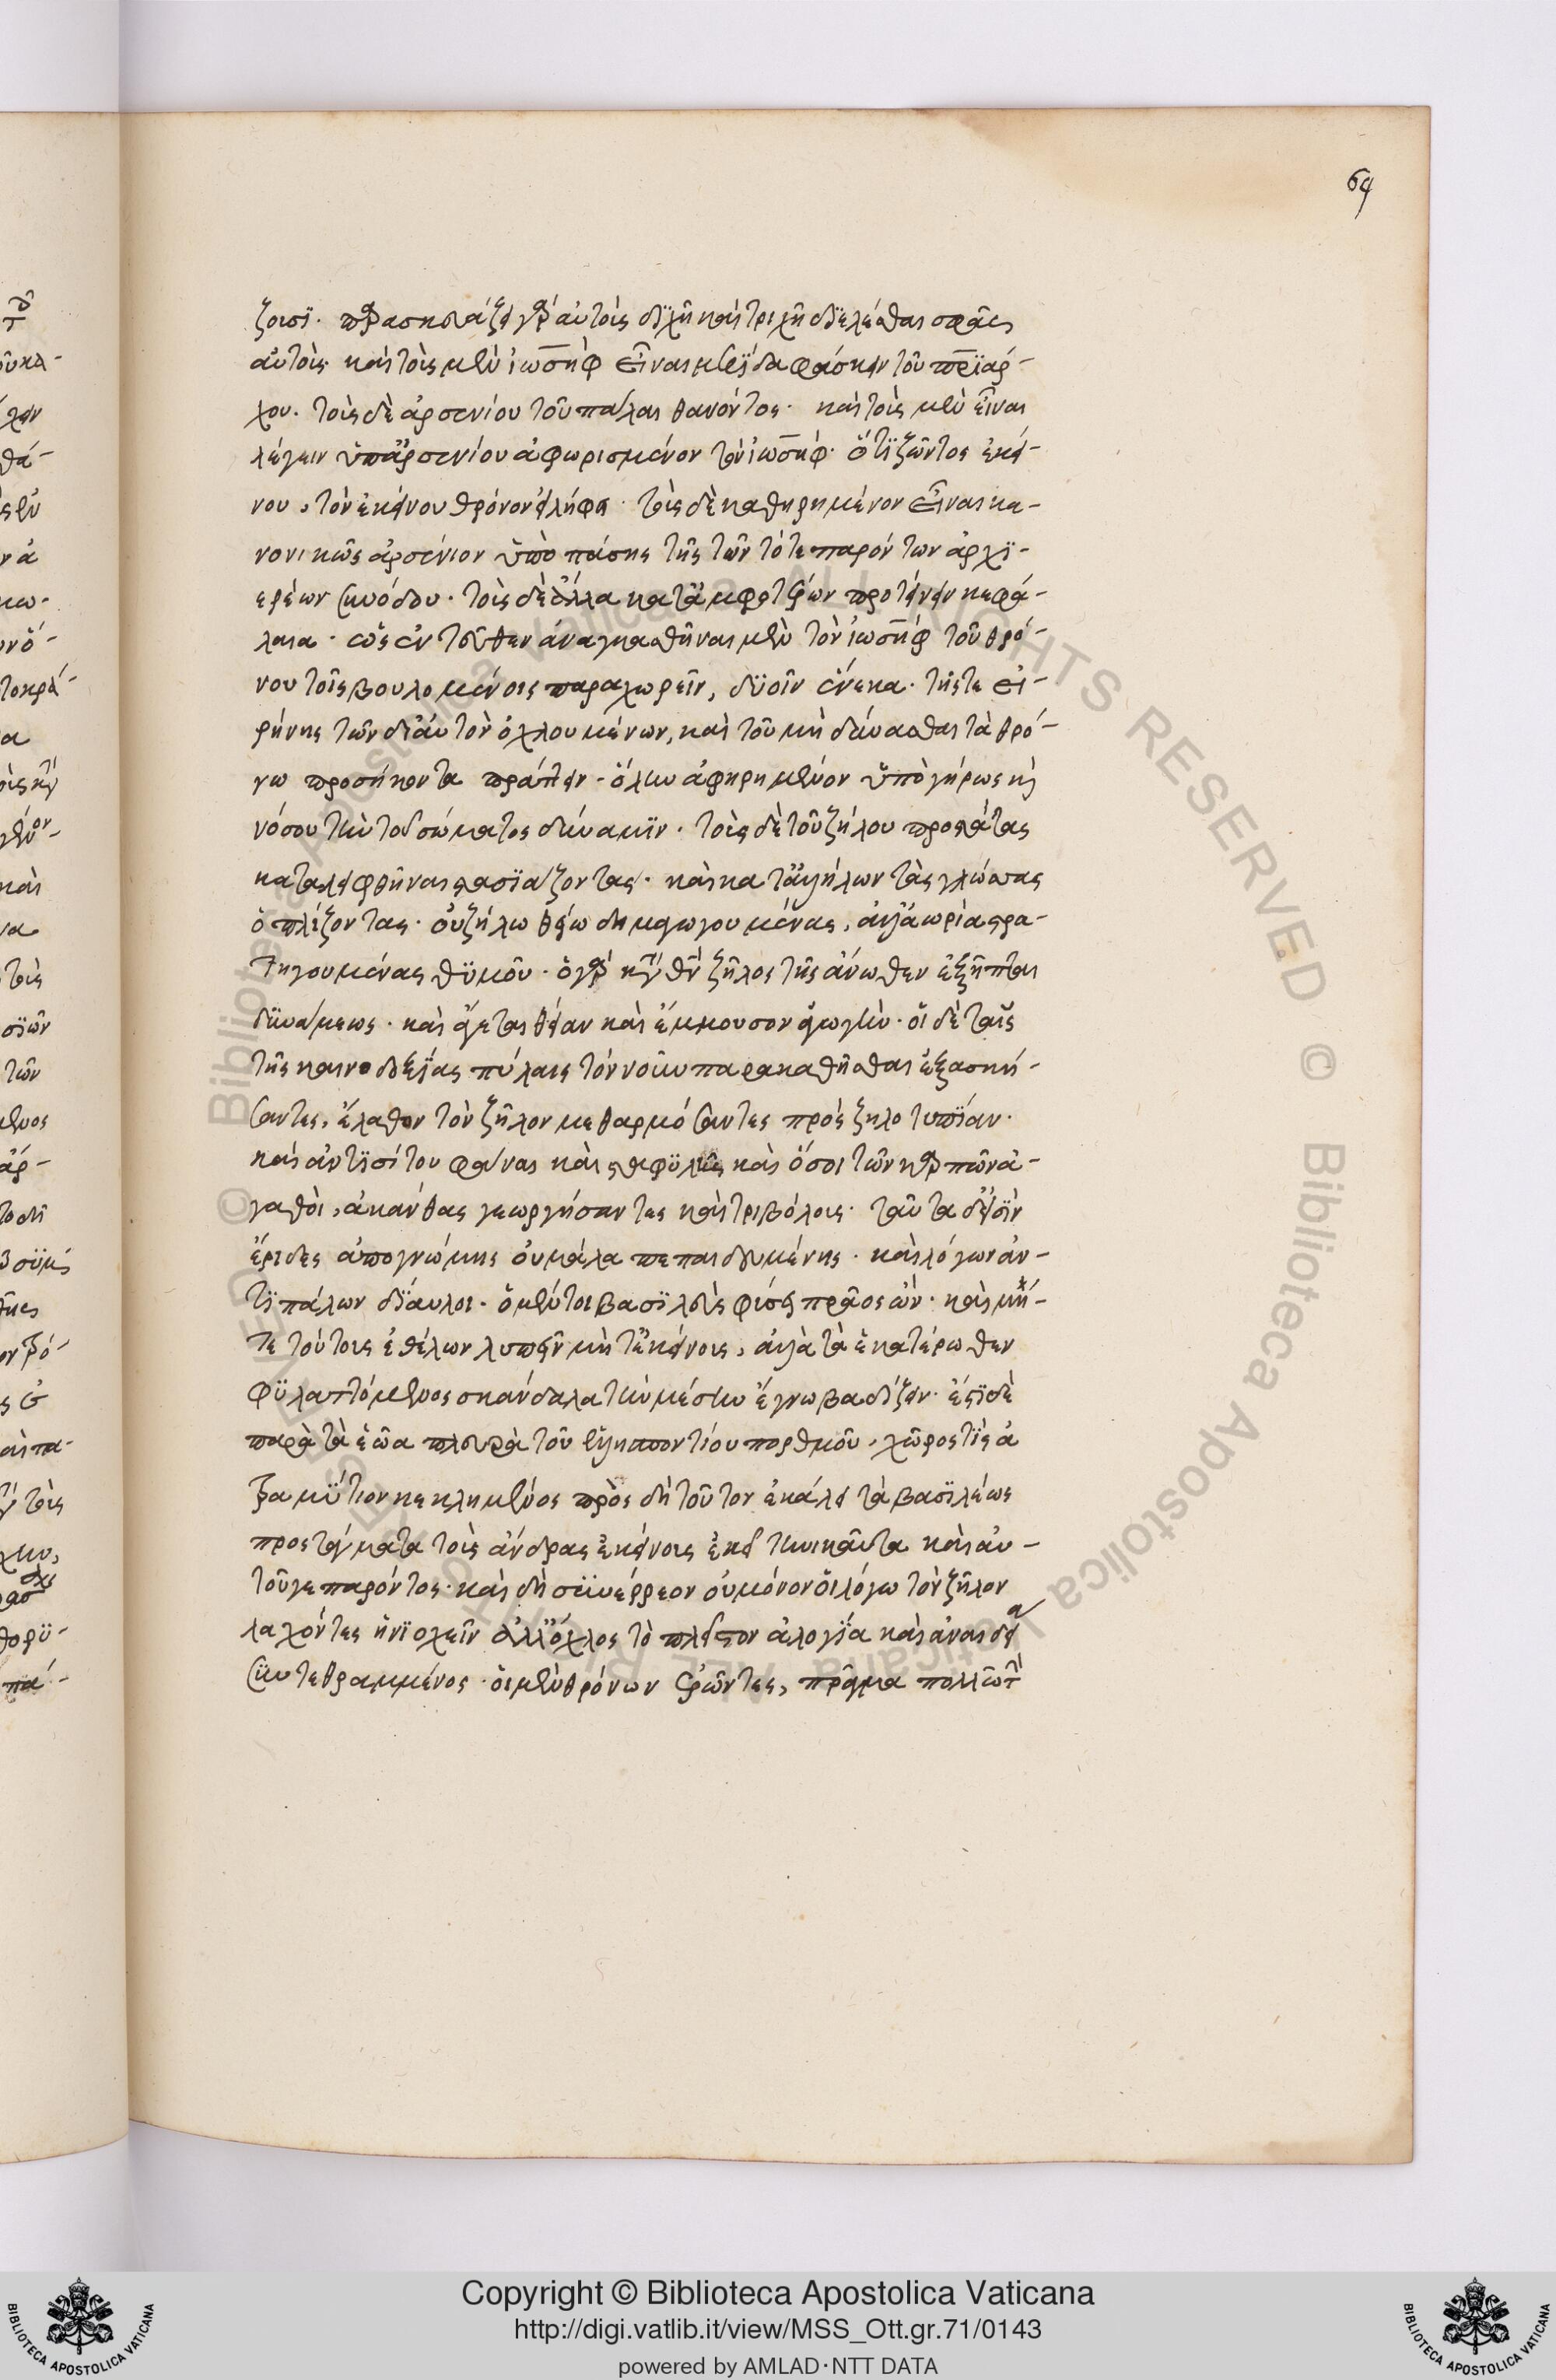 64
ζουσι. παρασκευάζει γὰρ αὐτοὺς διχῆ καὶ τριχῆ διελέσθαι σφᾶς
αὐτοὺς καὶ τοὺς μὲν ἰωσὴφ εἶναι μερίδα φάσκειν τοῦ πατριάρ-
χου. τοὺς δὲ ἀρσενίου τοῦ πάλαι θανόντος. καὶ τοὺς μὲν εἶναι
λέγειν ὑπ' ἀρσενίου ἀφωρισμένον τὸν ἰωσήφ. ὅτι ζῶντος ἐκεί-
νου, τὸν ἐκείνου θρόνον εἰλήφει. τοὺς δὲ καθῃρημένον εἶναι κα-
νονικῶς ἀρσένιον ὑπὸ πάσης τῆς τῶν τότε παρόντων ἀρχι-
ερέων συνόδου. τοὺς δὲ ἄλλα κατ' ἀμφοτέρων προτείνειν κεφά-
λαια. ὡς ἐντεῦθεν ἀναγκασθῆναι μὲν τὸν ἰωσὴφ τοῦ θρό-
νου τοῖς βουλομένοις παραχωρεῖν, δυοῖν ἕνεκα. τῆς τε εἰ-
ρήνης τῶν δι' αὐτὸν ὀχλουμένων, καὶ τοῦ μὴ δύνασθαι τὰ θρό-
νω προσήκοντα πράττειν. ὅλην ἀφῃρημένον ὑπὸ γήρως καὶ
νόσου τὴν τοῦ σώματος δύναμιν. τοὺς δὲ τοῦ ζήλου προστάτας
καταλειφθῆναι στασιάζοντας. καὶ κατ' ἀλλήλων τὰς γλώσσας
ὁπλίζοντας. οὐ ζήλω θείω δημαγωγουμένας, ἀλλ' ἀωρία στρα-
τηγουμένας θυμοῦ. ὁ γὰρ κατὰ θεὸν ζῆλος τῆς ἄνωθεν ἐξῆπται
δυνάμεως. καὶ ἄγεται θείαν καὶ ἔμμουσον ἀγωγήν. οἱ δὲ ταῖς
τῆς καινοδοξίας πύλαις τὸν νοῦν παρακαθῆσθαι ἐξασκή-
σαντες, ἔλαθον τὸν ζῆλον μεθαρμόσαντες πρὸς ζηλοτυπίαν.
καὶ ἀντὶ σίτου φαίναι καὶ σταφυλῆς καὶ ὅσοι τῶν καρπῶν ἀ-
γαθοὶ, ἀκάνθας γεωργήσαντες καὶ τριβόλους. ταῦτα δ' εἰσὶν
ἔριδες ἀπὸ γνώμης οὐ μάλα πεπαιδευμένης. καὶ λόγων ἀν-
τιπάλων δίαυλοι. ὁ μέντοι βασιλεὺς φύσει πρᾶος ὢν. καὶ μή-
τε τούτοις ἐθέλων λυπεῖν μήτ' ἐκείνοις, ἀλλὰ τὰ ἑκατέρωθεν
φυλαττόμενος σκάνδαλα τὴν μέσην ἔγνω βαδίζειν. ἔστι δὲ
παρὰ τὰ ἑῶα πλευρὰ τοῦ ἑλλησποντίου πορθμοῦ, χῶρος τὶς ἀ
τραμύτιον κεκλημένος πρὸς δὴ τοῦτον ἐκάλει τὰ βασιλέως
προστάγματα τοὺς ἄνδρας ἐκείνους ἐκεῖ τηνικαῦτα καὶ αὐ-
τοῦ γε παρόντος. καὶ δὴ συνέρρεον οὐ μόνον οἳ λόγω τὸν ζῆλον
λαχόντες ἡνιοχεῖν ἀλλ' ὄχλος τὸ πλεῖστον ἀλογία καὶ ἀναιδεία
συντεθραμμένος. οἱ μὲν θρόνων ἐρῶντες, πρᾶγμα πολλῶν